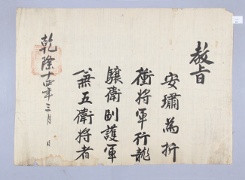 敎旨
安璛為折
衝將軍行龍
驤衛副護軍
兼五衛將者
乾隆十四年三月 日